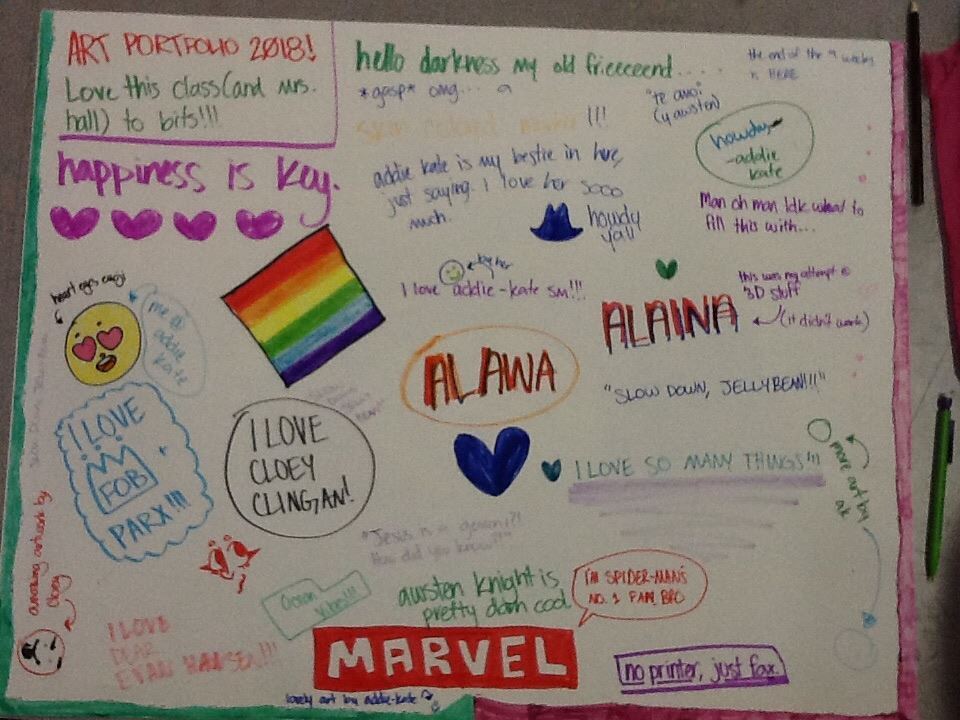 ART PORTFOLIO 2018!
Love this class(and mrs.
hall) to bits!!!
happiness is key.
hello darkness my old frieeeeend....
*gasp* omg... a
!!!
the end of the 9 weeks
is HERE
(y austen)
howdy
-addie
kate
addie kate is my bestie in here,
just saying. I love her sooo
much.
howdy
yall
Man oh man Idk what to
fill this with...
by her
I love addie-kate sm!!!
this was my attempt @
3D stuff
ALAINA
(it didn't work)
heart eyes emoji
me @
addie
kate
ALAWA
"SLOW DOWN, JELLYBEAN!!!"
I LOVE
FOB
PARX!!!
I LOVE
CLOEY
CLINGAN!
I LOVE SO MANY THINGS!!!
more art by
ak
"Jesus is a gemini?!
How did you know?!"
amazing artwork by
Cloey
Ocean
Vibes!!!
aursten knight is
pretty darn cool
I'M SPIDER-MAN'S
NO. 1 FAN, BRO
I LOVE
DEAR
EVAN HANSEN!!!
MARVEL
no printer, just fax.
lovely art by addie-kate